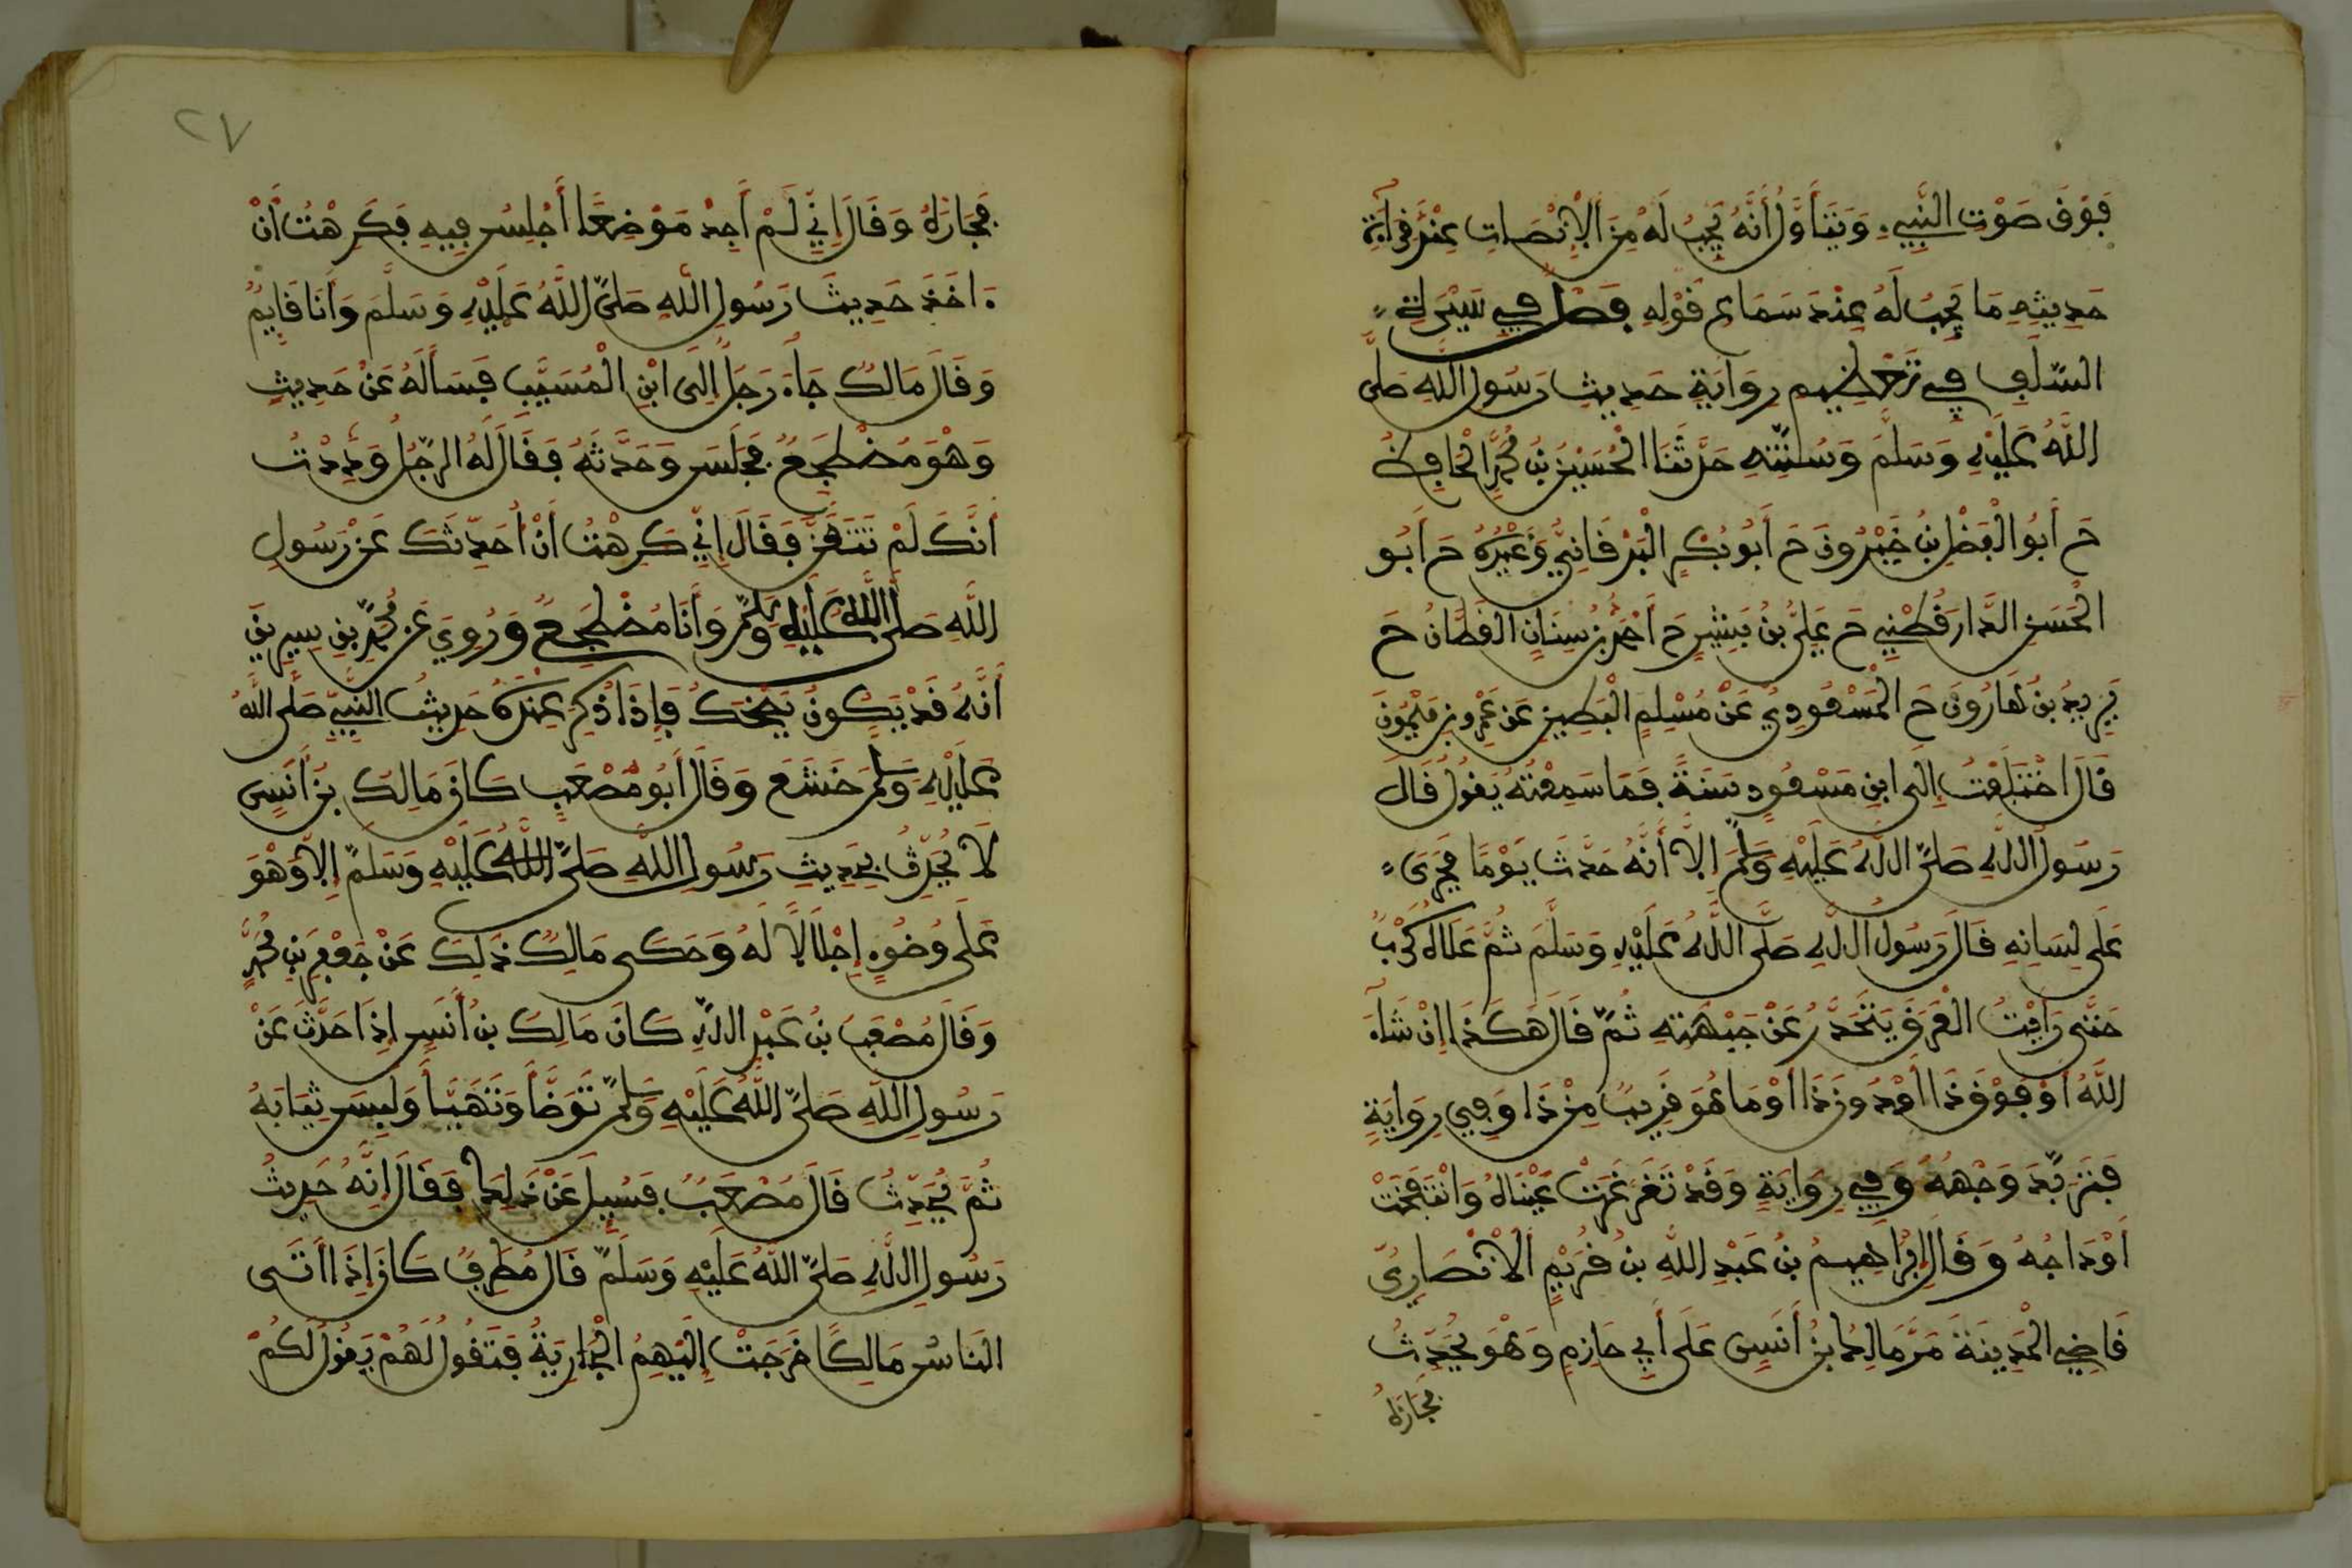 فَوْقَ صَوْتِ النَّبِيِّ وَيَتَأَوَّلُ أَنَّهُ يَجِبُ لَهُ مِنَ الْإِنْصَاتِ عِنْدَ قِرَآءَةِ
حَدِيثِهِ مَا يَجِبُ لَهُ عِنْدَ سَمَاعِ قَوْلِهِ فَصْلٌ فِي سِيرَةِ
السَّلَفِ فِي تَعْظِيمِ رِوَايَةِ حَدِيثِ رَسُولِ اللَّهِ صَلَّى
اللَّهُ عَلَيْهِ وَسَلَّمَ وَسُنَّتِهِ حَدَّثَنَا الْحُسَيْنُ بْنُ مُحَمَّدٍ الْحَافِظُ
حَ أَبُو الْفَضْلِ بْنُ خَيْرُونَ حَ أَبُو بَكْرٍ الْبَرْقَانِيُّ وَغَيْرُهُ حَ أَبُو
الْحَسَنِ الدَّارَقُطْنِي حَ عَلِيُّ بْنُ مُبَشِّرٍ حَ أَحْمَدُ بْنُ سِنَانٍ الْقَطَّانُ حَ
يَزِيدُ بْنُ هَارُونَ حَ الْمَسْعُودِيُّ عَنْ مُسْلِمٍ الْبَطِينِ عَنْ عَمْرِو بْنِ مَيْمُونَ
قَالَ اخْتَلَفْتُ إِلَى ابْنِ مَسْعُودٍ سَنَةً فَمَا سَمِعْتُهُ يَقُولُ قَالَ
رَسُولُ اللَّهِ صَلَّى اللَّهُ عَلَيْهِ وَسَلَّمَ إِلَّا أَنَّهُ حَدَّثَ يَوْمًا فَجَرَى
عَلَى لِسَانِهِ قَالَ رَسُولُ اللَّهِ صَلَّى اللَّهُ عَلَيْهِ وَسَلَّمَ ثُمَّ عَلَاهُ كَرْبٌ
حَتَّى رَأَيْتُ الْعَرَقَ يَتَحَدَّرُ عَنْ جَبْهَتِهِ ثُمَّ قَالَ هَكَذَا إِنْ شَآءَ
اللَّهُ أَوْ فَوْقَ ذَا أَوْ دُونَ ذَا أَوْ مَا هُوَ قَرِيبٌ مِنْ ذَا وَفِي رِوَايَةٍ
فَتَرَبَّدَ وَجْهُهُ وَفِي رِوَايَةٍ وَقَدْ تَغَرْغَرَتْ عَيْنَاهُ وَانْتَفَخَتْ
أَوْدَاجُهُ وَقَالَ إِبْرَاهِيمُ بْنُ عَبْدِ اللَّهِ بْنِ قُرَيْمٍ الْأَنْصَارِيُّ
قَاضِي الْمَدِينَةِ مَرَّ مَالِكُ ابْنُ أَنَسٍ عَلَى أَبِي حَازِمٍ وَهْوَ يُحَدِّثُ
فَجَازَهُ
٢٧
فَجَازَهُ وَقَالَ إِنِّي لَمْ أَجِدْ مَوْضِعًا أَجْلِسُ فِيهِ فَكَرِهْتُ أَنْ
ءَاخُذَ حَدِيثَ رَسُولِ اللَّهِ صَلَّى اللَّهُ عَلَيْهِ وَسَلَّمَ وَأَنَا قَايِمٌ
وَقَالَ مَالِكٌ جَآءَ رَجُلٌ إِلَى ابْنِ الْمُسَيَّبِ فَسَأَلَهُ عَنْ حَدِيثٍ
وَهْوَ مُضْطَجِعٌ فَجَلَسَ وَحَدَّثَهُ فَقَالَ لَهُ الرَّجُلُ وَدِدْتُ
أَنَّكَ لَمْ تَتَعَنَّ فَقَالَ إِنِّي كَرِهْتُ أَنْ أُحَدِّثَكَ عَنْ رَسُولِ
اللَّهِ صَلَّى اللَّهُ عَلَيْهِ وَسَلَّمَ وَأَنَا مُضْطَجِعٌ وَرُوِيَ عَنْ مُحَمَّدِ بْنِ سِيرِينَ
أَنَّهُ قَدْ يَكُونُ يَضْحَكُ فَإِذَا ذُكِرَ عِنْدَهُ حَدِيثُ النَّبِيِّ صَلَّى اللَّهُ
عَلَيْهِ وَسَلَّمَ خَشَعَ وَقَالَ أَبُو مُصْعَبٍ كَانَ مَالِكُ بْنُ أَنَسٍ
لَا يُحَدِّثُ بِحَدِيثِ رَسُولِ اللَّهِ صَلَّى اللَّهُ عَلَيْهِ وَسَلَّمَ إِلَّا وَهْوَ
عَلَى وُضُوءٍ إِجْلَالًا لَهُ وَحَكَى مَالِكٌ ذَلِكَ عَنْ جَعْفَرِ بْنِ مُحَمَّدٍ
وَقَالَ مُصْعَبُ بْنُ عَبْدِ اللَّهِ كَانَ مَالِكُ بْنُ أَنَسٍ إِذَا حَدَّثَ عَنْ
رَسُولِ اللَّهِ صَلَّى اللَّهُ عَلَيْهِ وَسَلَّمَ تَوَضَّأَ وَتَهَيَّأَ وَلَبِسَ ثِيَابَهُ
ثُمَّ يُحَدِّثُ قَالَ مُصْعَبٌ فَسُيِلَ عَنْ ذَلِكَ فَقَالَ إِنَّهُ حَدِيثُ
رَسُولِ اللَّهِ صَلَّى اللَّهُ عَلَيْهِ وَسَلَّمَ قَالَ مُطَرِّفٌ كَانَ إِذَا أَتَى
النَّاسُ مَالِكًا خَرَجَتْ إِلَيْهِمُ الْجَارِيَةُ فَتَقُولُ لَهُمْ يَقُولُ لَكُمْ